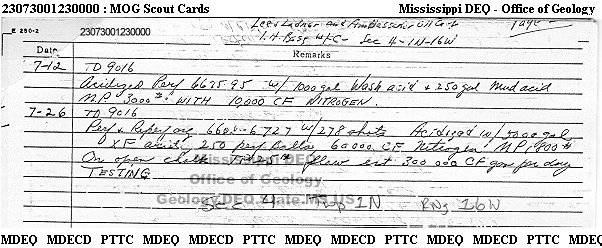 23073001230000 : MOG Scout Cards Mississippi DEQ - Office of Geology
E 290-2 23073001230000 Lees Lidner and Ambassador Oil Corp Page
I.H. Bass Sec 4-1N-16W
Date Remarks
7-12 TD 9016
Acidized Perf 6635-95 w/ 1000 gal Wash acid + 250 gal Mud acid
MP 3000# WITH 10,000 CF NITROGEN.
7-26 TD 9016
Perf & Reperf 6727 w/ 278 shots Acidized w/ 5000 gal
XF acid, 250 perf Balls 60000 CF Nitrogen MP 1,800#
On open choke flow est 300 000 CF gas per day
TESTING
Mississippi DEQ
Office of Geology
Geology.DEQ.State.MS.US
SEC 4 Twp 1N RNg 16W
MDEQ MDECD PTTC MDEQ MDECD PTTC MDEQ MDECD PTTC MDEQ MDECD